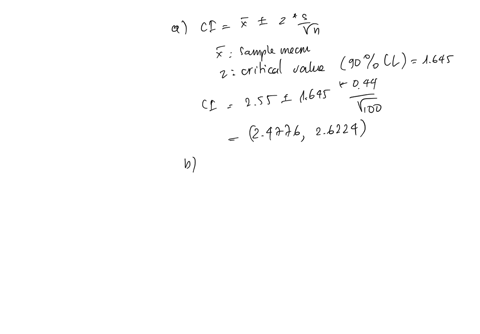 a) CI = x̄ ± z * s/√n
x̄ : sample mean
z : critical value (90% CL) = 1.645
CI = 2.55 ± 1.645 * 0.44/√100
= (2.4776, 2.6224)
b)